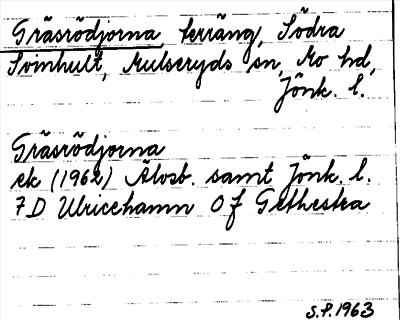 Gräsrödjorna, terräng, Södra
Svinhult, Mulseryds sn, Mo hd,
Jönk. l.
Gräsrödjorna
ek (1962) Älvsb. samt Jönk. l.
7D Ulricehamn 0f Grthestra
S.P. 1963